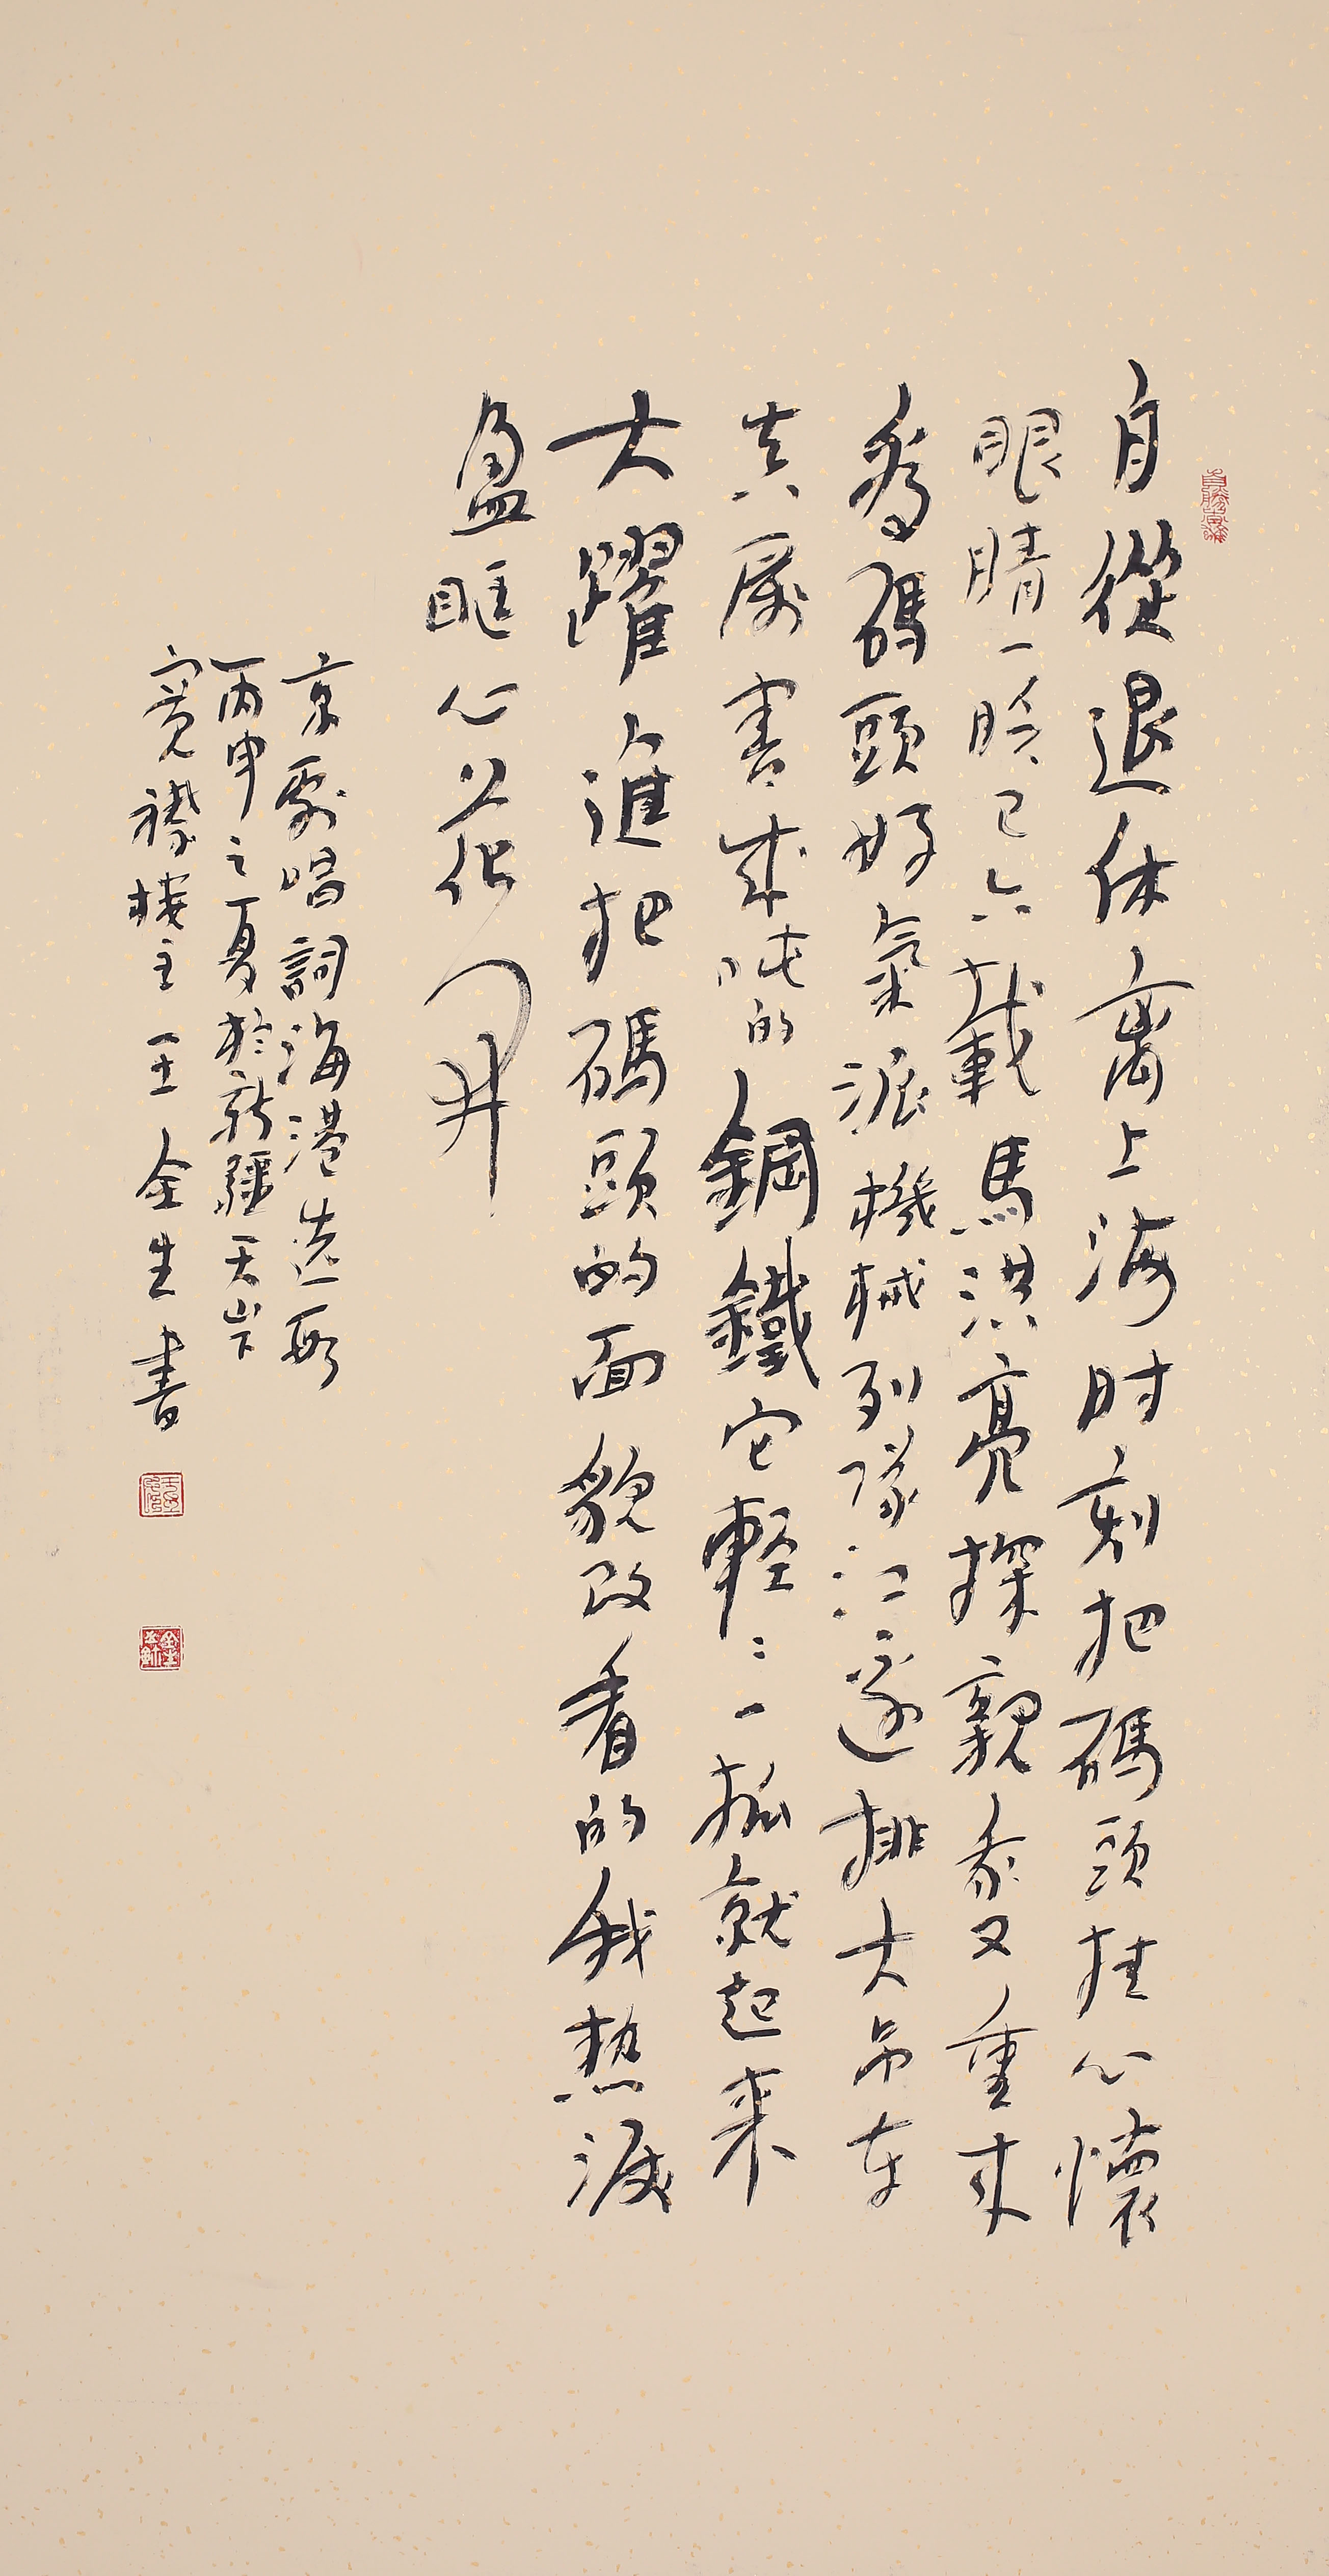 自從退休离上海时刻把碼頭挂心懷
眼睛一眨已六載馬洪亮探親我又重来
看碼頭好氣派機械列隊江邊排大吊车
真厲害成吨的鋼鐵它輕〻一抓就起来
大躍進把碼頭的面貌改看的我热淚
盈眶心花開
京劇唱詞海港选段
丙申之夏於新疆天山下
寬襟楼主王金生書